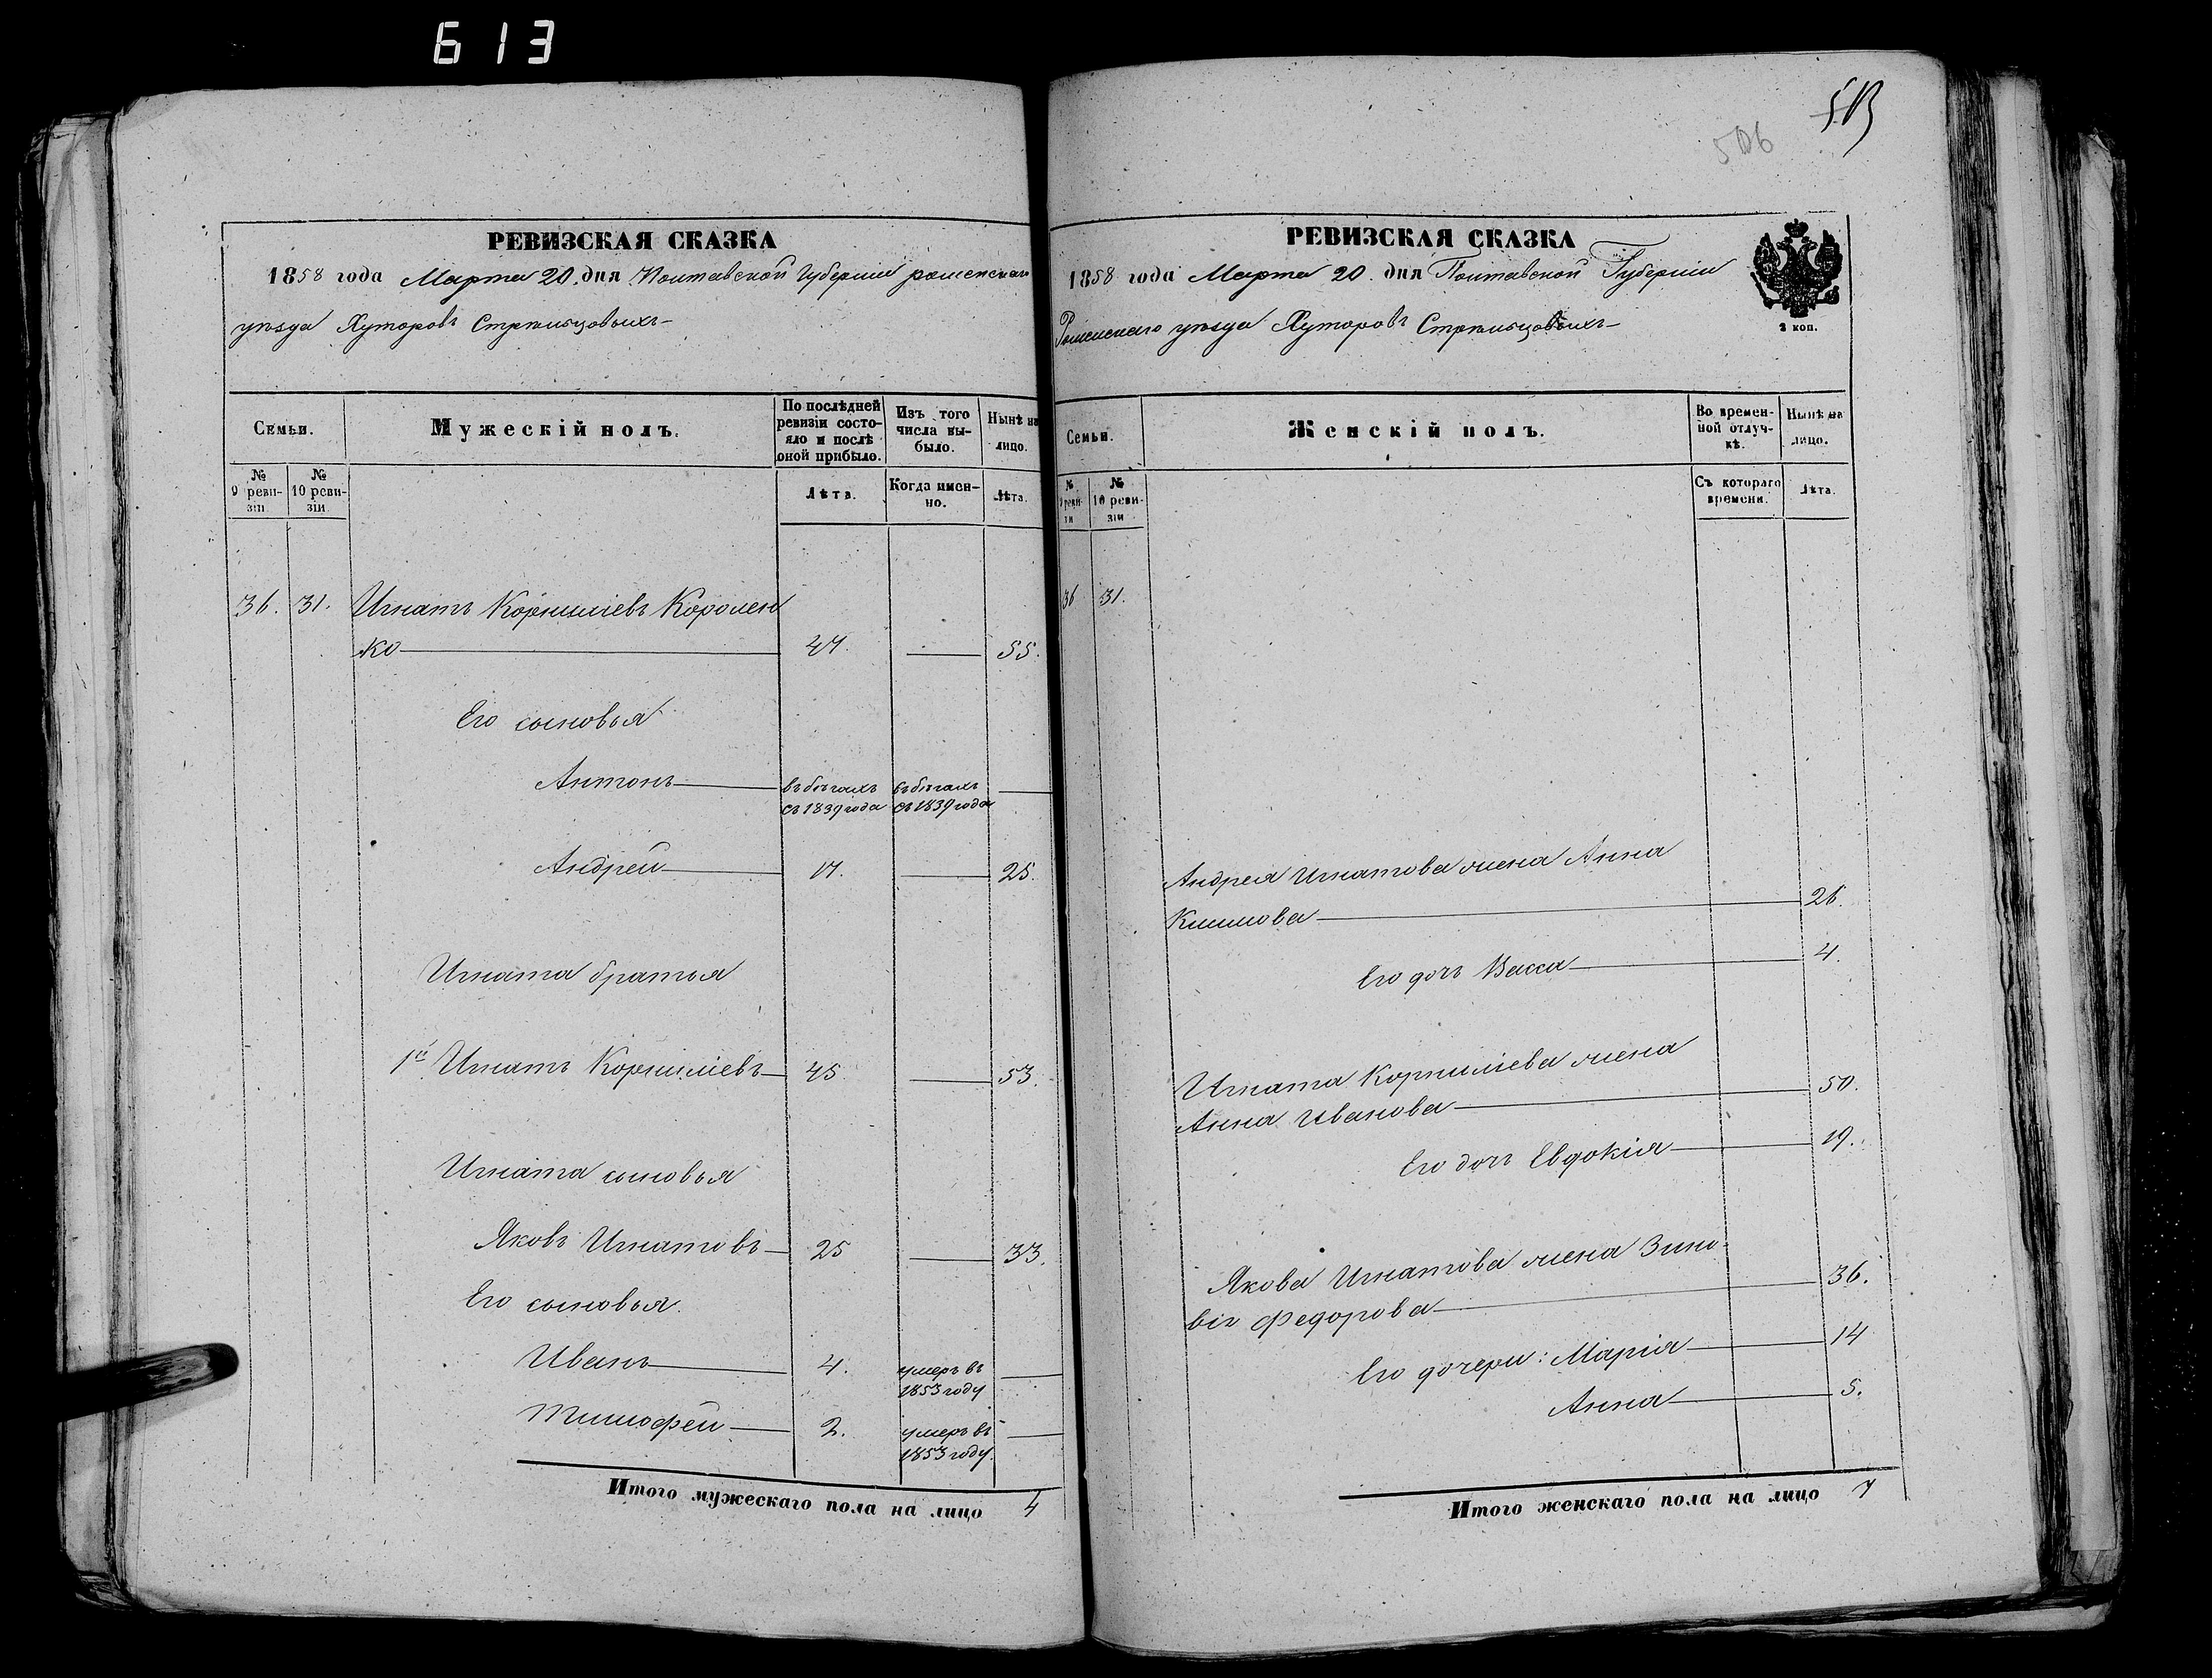 613
513
506
РЕВИЗСКАЯ СКАЗКА
1858 года Марта 20. дня Полтавской Губерніи роменскаго
уѣзда Хуторовъ Стрѣльцовыхъ
Семьи.
Мужескій полъ.
По послѣдней ревизіи состояло и послѣ оной прибыло.
Изъ того числа выбыло.
Нынѣ на лицо.
№ 9 ревизіи
№ 10 ревизіи
Лѣта.
Когда именно.
Лѣта.
36. 31. Игнатъ Корниліевъ Королен
ко 47. 55.
Его сыновья
Антонъ въ бѣгахъ съ 1839 года въ бѣгахъ съ 1839 года
Андрей 17. 25.
Игната братья
1й Игнатъ Корниліевъ 45 53.
Игната сыновья
Яковъ Игнатовъ 25 33.
Его сыновья.
Иванъ 4. умеръ въ 1853 году
Тимофей 2. умеръ въ 1853 году.
Итого мужескаго пола на лицо 4
РЕВИЗСКАЯ СКАЗКА
1858 года Марта 20. дня Полтавской Губерніи
Роменскаго уѣзда Хуторовъ Стрѣльцовыхъ
2 коп.
Семьи.
Женскій полъ.
Во временной отлучкѣ.
Нынѣ на лицо.
№ 9 ревизіи
№ 10 ревизіи
Съ котораго времени.
Лѣта.
36 31.
Андрея Игнатова жена Анна
Климова 26.
Его дочь Васса 4.
Игната Корниліева жена
Анна Иванова 50.
Его дочь Евдокія 19.
Якова Игнатова жена Зино-
вія Федорова 36.
Его дочери: Марія 14
Анна 5.
Итого женскаго пола на лицо 7